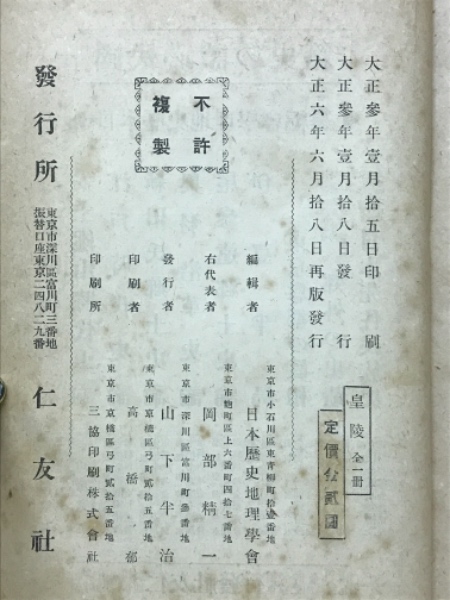 大正參年壹月拾五日印刷
大正參年壹月拾八日發行
大正六年六月拾八日再版發行
皇陵 全一冊
定價金貳圓
不許
複製
編輯者
東京市小石川區東青柳町拾壹番地
日本歷史地理學會
右代表者
東京市麴町區上六番町四拾七番地
岡部精一
發行者
東京市深川區富川町參番地
山下半治
印刷者
東京市京橋區弓町貳拾五番地
高橋郁
印刷所
東京市京橋區弓町貳拾五番地
三協印刷株式會社
發行所
東京市深川區富川町三番地
振替口座東京二四八二九番
仁友社